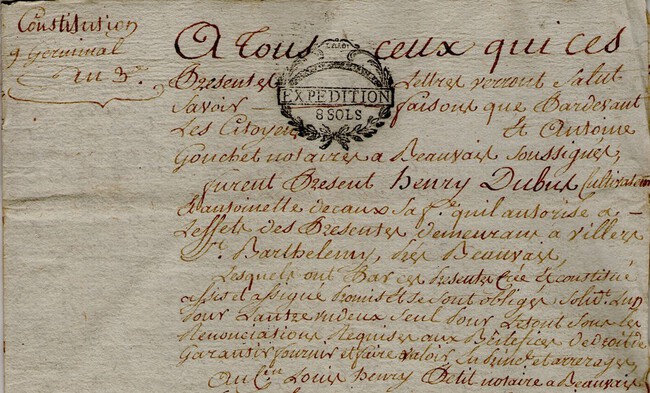 Constitution
9 Germinal
an 3e
A Tous ceux qui ces
Presentes Lettres verront Salut
Savoir faisons que Pardevant
Les Citoyens Et Antoine
EXPEDITION
8 SOLS
Gouchet notaires a Beauvais Soussignés,
furent Present henry Dubus Cultivateur
Et antoinette decaux Sa fe. quil autorise a
Leffet des Presentes demeurans a Villers
St. Barthelemy, Pres Beauvais,
Lesquels ont Par ces presentes Créé et constitué
assis et assigné promis et se sont obligés Solidt. Lun
Pour Lautre un deux Seul Pour Letout Sous les
Renonciations Requises aux Benefices de droit de
Garantir fournir et faire valoir en et arrerages,
au Cen Louis henry Petit notaire a Beauvais